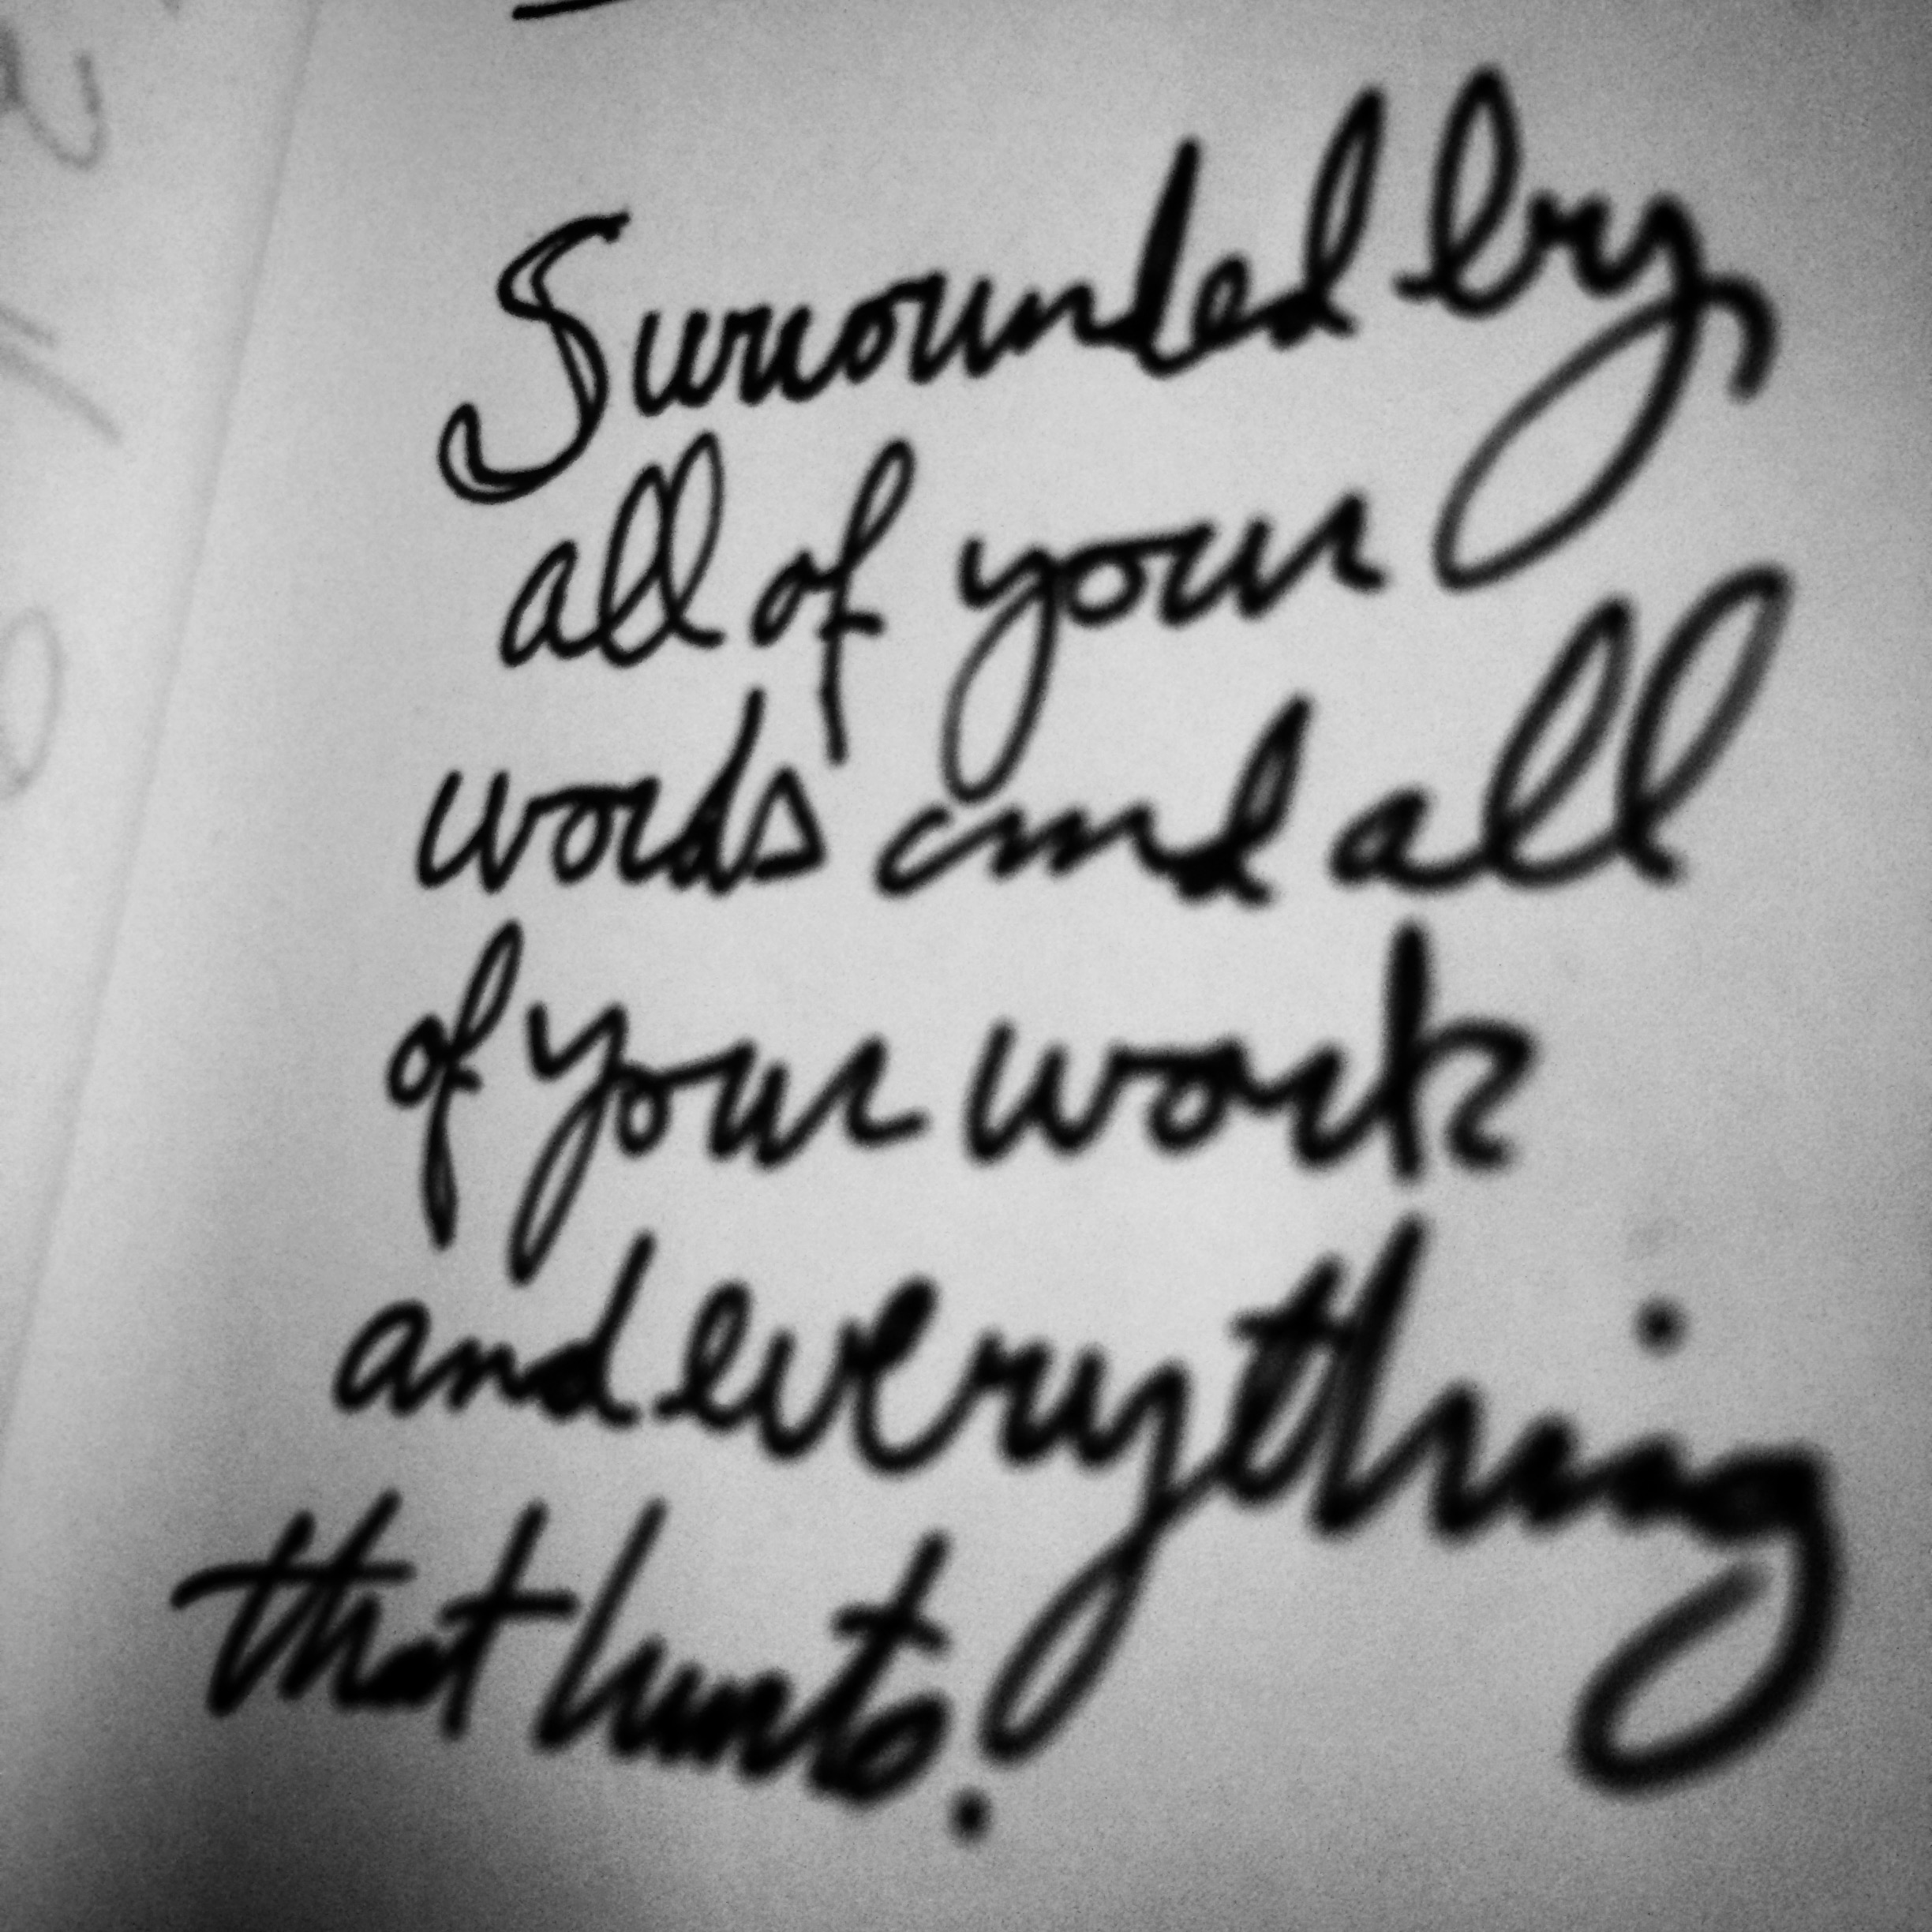 Surrounded by
all of your
words and all
of your work
and everything
that hurts.